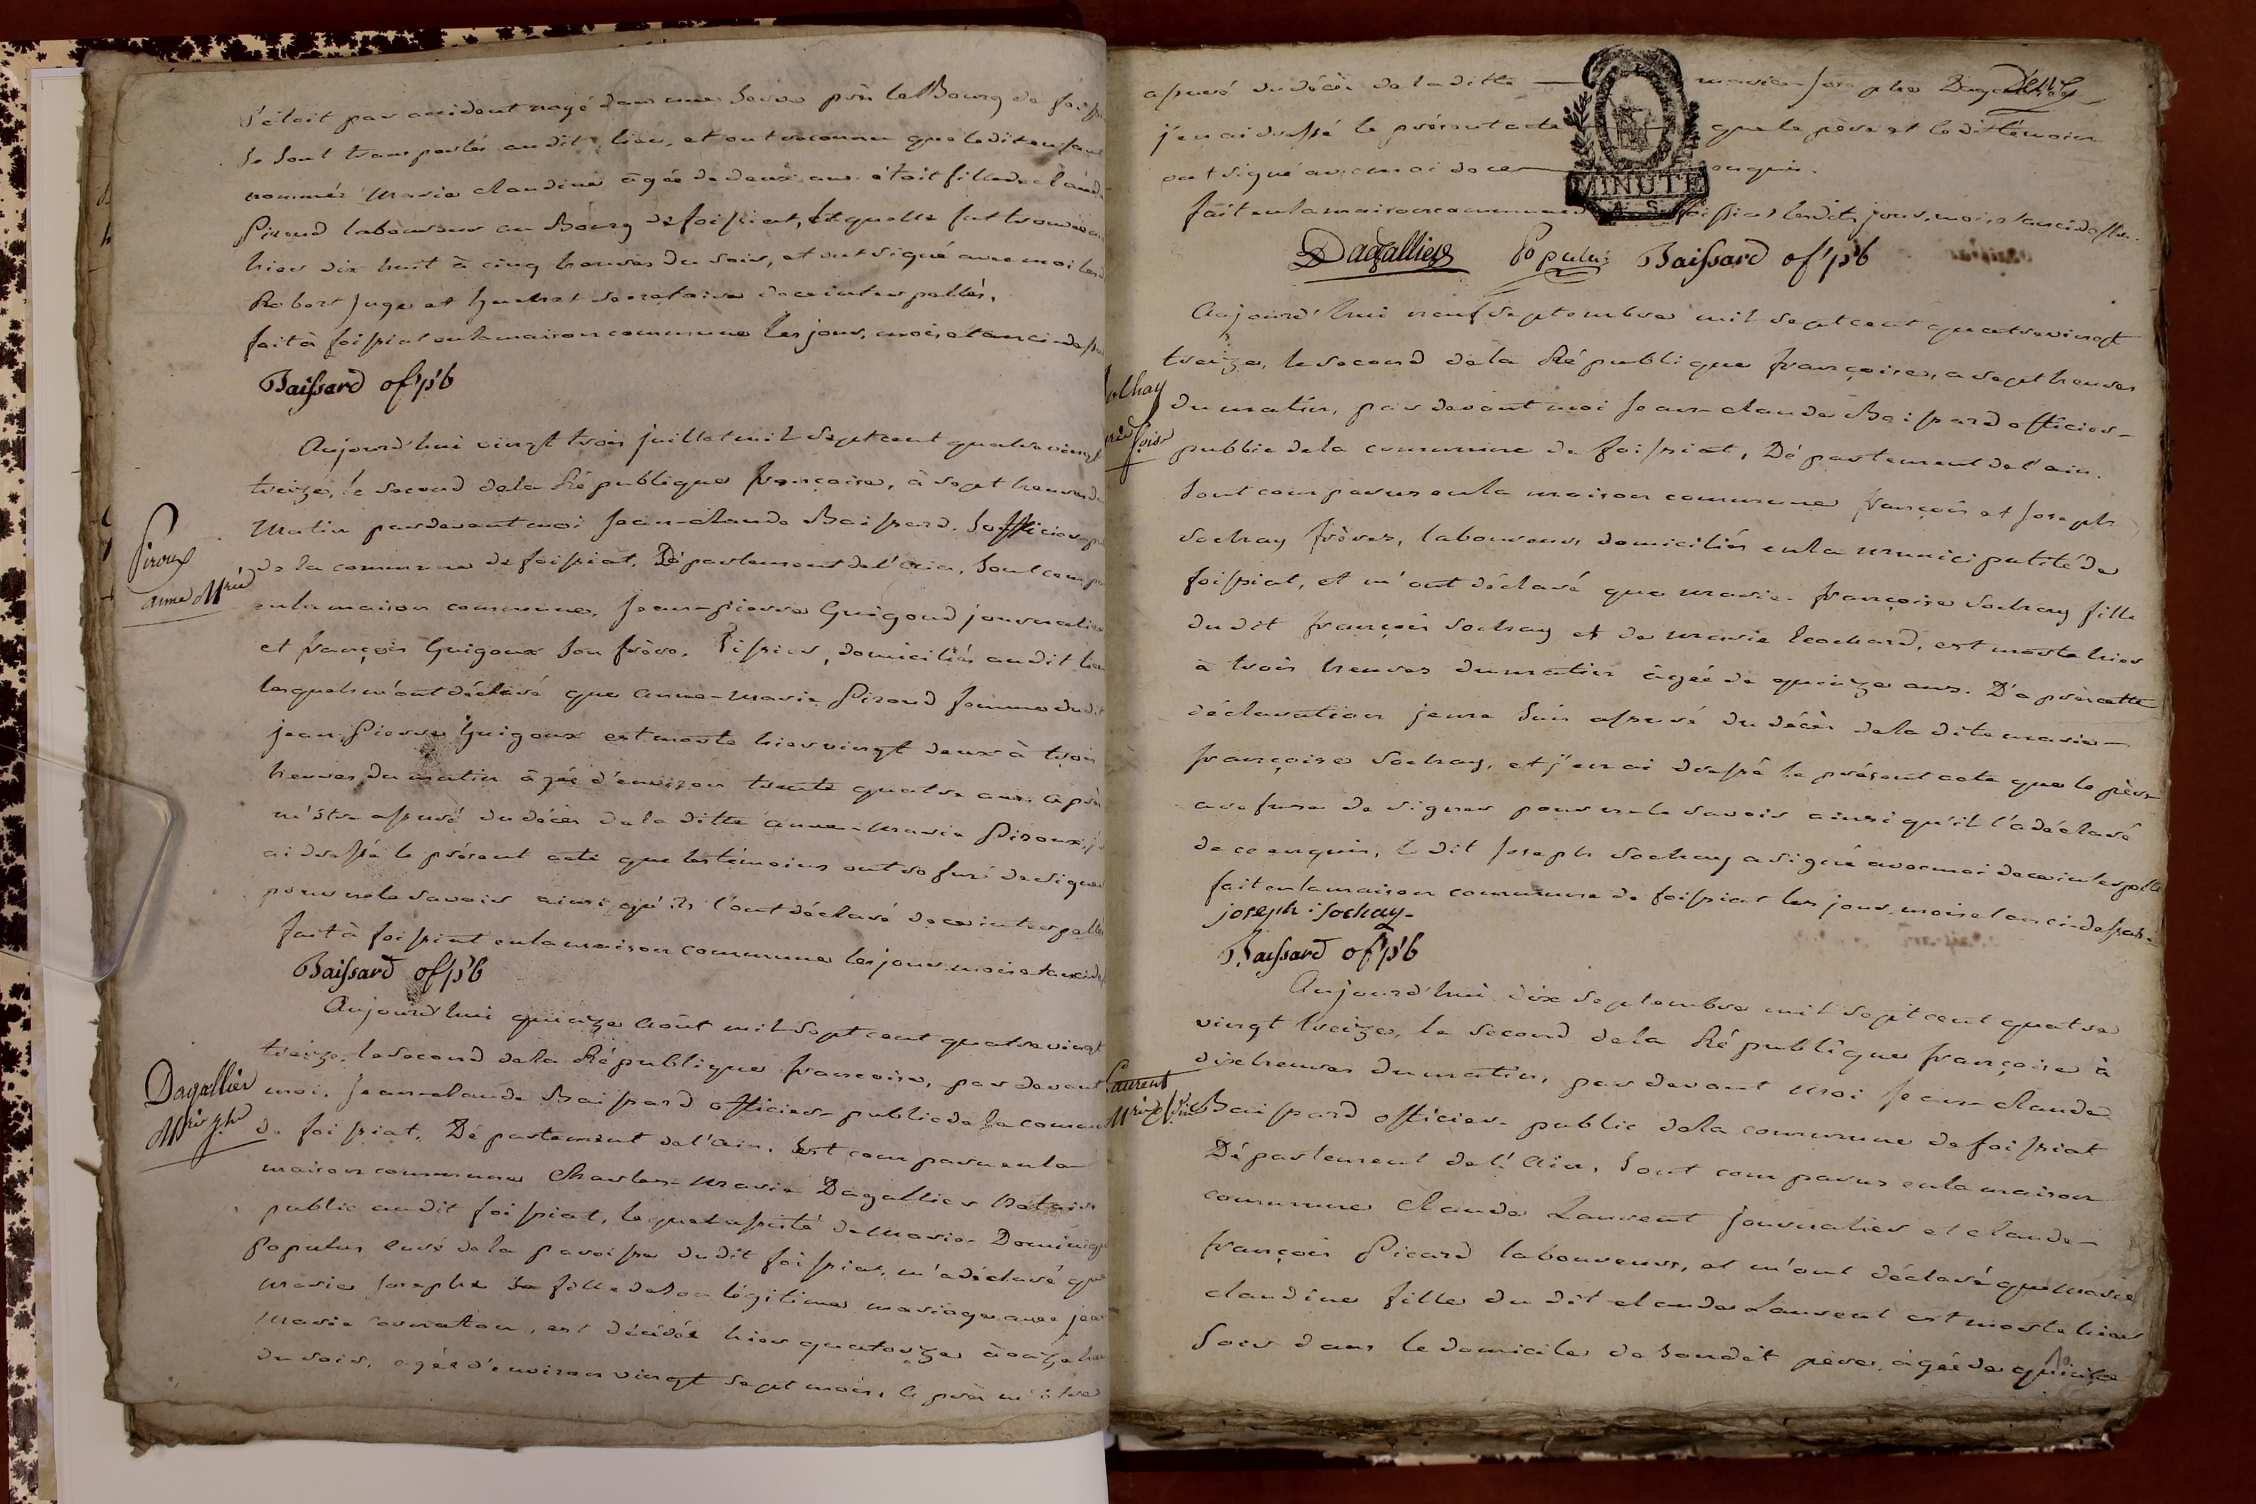 s'était par accident noyé dans une serve près le Bourg de foissi
se sont transportés audit lieu, et ont reconnu que ledit enfant
nommée Marie claudine âgée de deux ans était fille de claude
Piroud laboureur au Bourg de foissiat, laquelle fut trouvée
hier dix huit à cinq heures du soir, et ont signé avec moi lesd
Robert juge et secretaire de ce interpellés.
fait à foissiat en la maison commune les jour, mois et an ci dessus
Baissard of. p.b
Aujourd'hui vingt trois juillet mil sept cent quatre vingt
treize, le second de la République françoise, à sept heures du
Matin pardevant moi Jean-claude Baissard officier
de la commune de foissiat, Département de l'Ain, sont comp
Piroux
anne Mrie
en la maison commune, Jean-pierre Guigoud journalier
et françois Guigoux son frère, Tissier, domiciliés audit lieu
lesquels m'ont déclaré que anne-Marie Piroud femme dudit
jean Pierre Guigoux est morte hier vingt deux à trois
heures du matin âgée d'environ trente quatre ans. après
m'être assuré du décès de la ditte anne-Marie Piroux, j'
ai dressé le présent acte que les témoins ont refusé de signer
pour ne le savoir ainsi qu'ils l'ont déclaré de ce interpellés
fait à foissiat en la maison commune les jour mois et an ci de
Baissard of. p.b
Aujourd'hui quinze Août mil sept cent quatre vingt
treize, le second de la République françoise, par devant
Dagallier
Mrie Jphe
moi, Jean-claude Baissard officier public de la commune
de foissiat, Département de l'Ain, est comparu en la
maison commune Charles-Marie Dagallier Notaire
public audit foissiat, lequel assisté de Marie-Dominique
Populus curé de la paroisse dudit foissiat, m'a déclaré que
Marie Josephe sa fille de son légitime mariage avec jean
Marie , est décédée hier quatorze à onze heures
du soir, agée d'environ vingt sept mois, après m'être
deux
assuré du décès de la ditte marie-Josephe Dagallier
j'en ai dressé le présent acte que le père et le dit témoin
ont signé avec moi de ce enquis.
MINUTE
fait en la maison commune de foissiat lesdits jour, mois et an ci dessus.
Dagallier Populus Baissard of. p.b
Aujourd'hui neuf septembre mil sept cent quatre vingt
treize, le second de la République françoise, a sept heures
sochay
frse
du matin, par devant moi Jean-claude Baissard officier
public de la commune de foissiat, Département de l'ain.
sont comparus en la maison commune françois et Joseph
sochay frères, laboureurs domiciliés en la municipalité de
foissiat, et m'ont déclaré que marie-françoise sochay fille
dudit françois sochay et de marie , est morte hier
à trois heures du matin âgée de quinze ans. D'après cette
déclaration je me suis assuré du décès de la dite marie
françoise sochay, et j'en ai dressé le présent acte que le père
a refusé de signer pour ne le savoir ainsi qu'il l'a déclaré
de ce enquis, le dit Joseph sochay a signé avec moi de ce interpellé
fait en la maison commune de foissiat les jour mois et an ci-dessus.
joseph sochay
Baissard of. p.b
Aujourd'hui dix septembre mil sept cent quatre
vingt treize, le second de la République françoise à
Laurent
Mrie Cldine
dix heures du matin, par devant moi Jean-claude
Baissard officier public de la commune de foissiat
Département de l'Ain, sont comparus en la maison
commune claude Laurent journalier et claude
françois Picard laboureurs, et m'ont déclaré que marie
claudine fille du dit claude Laurent est morte hier
soir dans le domicile de son dit père, âgée de quinze